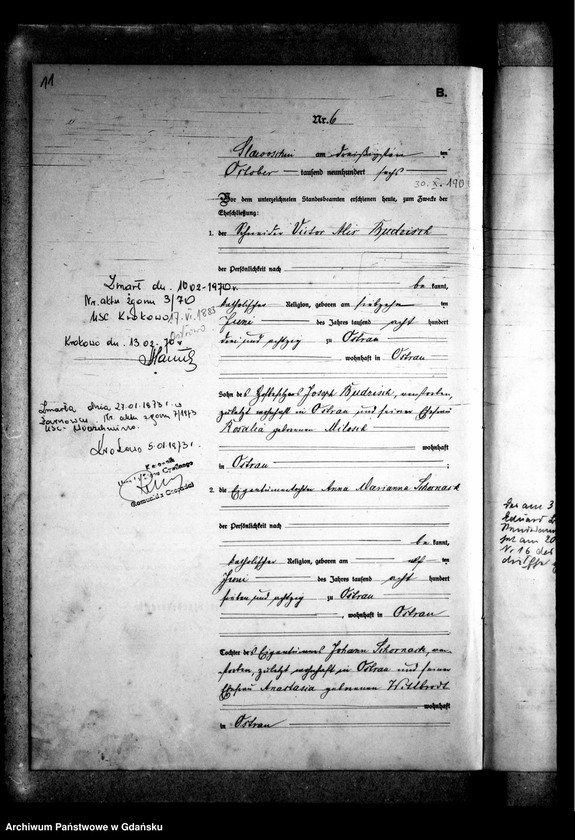 11
B.
Nr. 6
Slawoschin am dreißigsten ten
October tausend neunhundert sechs
30. X. 190
Vor dem unterzeichneten Standesbeamten erschienen heute, zum Zwecke der
Eheschließung:
1. der Schneider Victor Budzisch
der Persönlichkeit nach
be kannt,
katholischer Religion, geboren am siebzehn ten
Juni des Jahres tausend acht hundert
drei und achtzig zu Ostrau
wohnhaft in Ostrau
Sohn des Joseph Budzisch, verstorben,
zuletzt wohnhaft in Ostrau und seiner Ehefrau
Rosalia geborenen Milosch
wohnhaft
in Ostrau ;
2. die Eigentümertochter Anna Marianna Schornack
der Persönlichkeit nach
be kannt,
katholischer Religion, geboren am elf ten
Juni des Jahres tausend acht hundert
sieben und achtzig zu Ostrau
, wohnhaft in Ostrau
Tochter des Eigentümers Johann Schornack, ver-
storben, zuletzt wohnhaft in Ostrau und seiner
Ehefrau Anastasia geborenen Willbrodt
wohnhaft
in Ostrau
Zmarł dn. 10.02.1970 r.
Nr. aktu zgonu 3/70
USC Krokowo
17. VI. 1883
Krokowo dn. 13.02.70
Zmarła dnia 27.01.1873 r. w
Żarnowcu Nr aktu zgonu 7/1973
USC
Krokowo 5.01.1973 r.
Cywilnego
am 3
Eduard
am 20
Nr 16 des
Archiwum Państwowe w Gdańsku